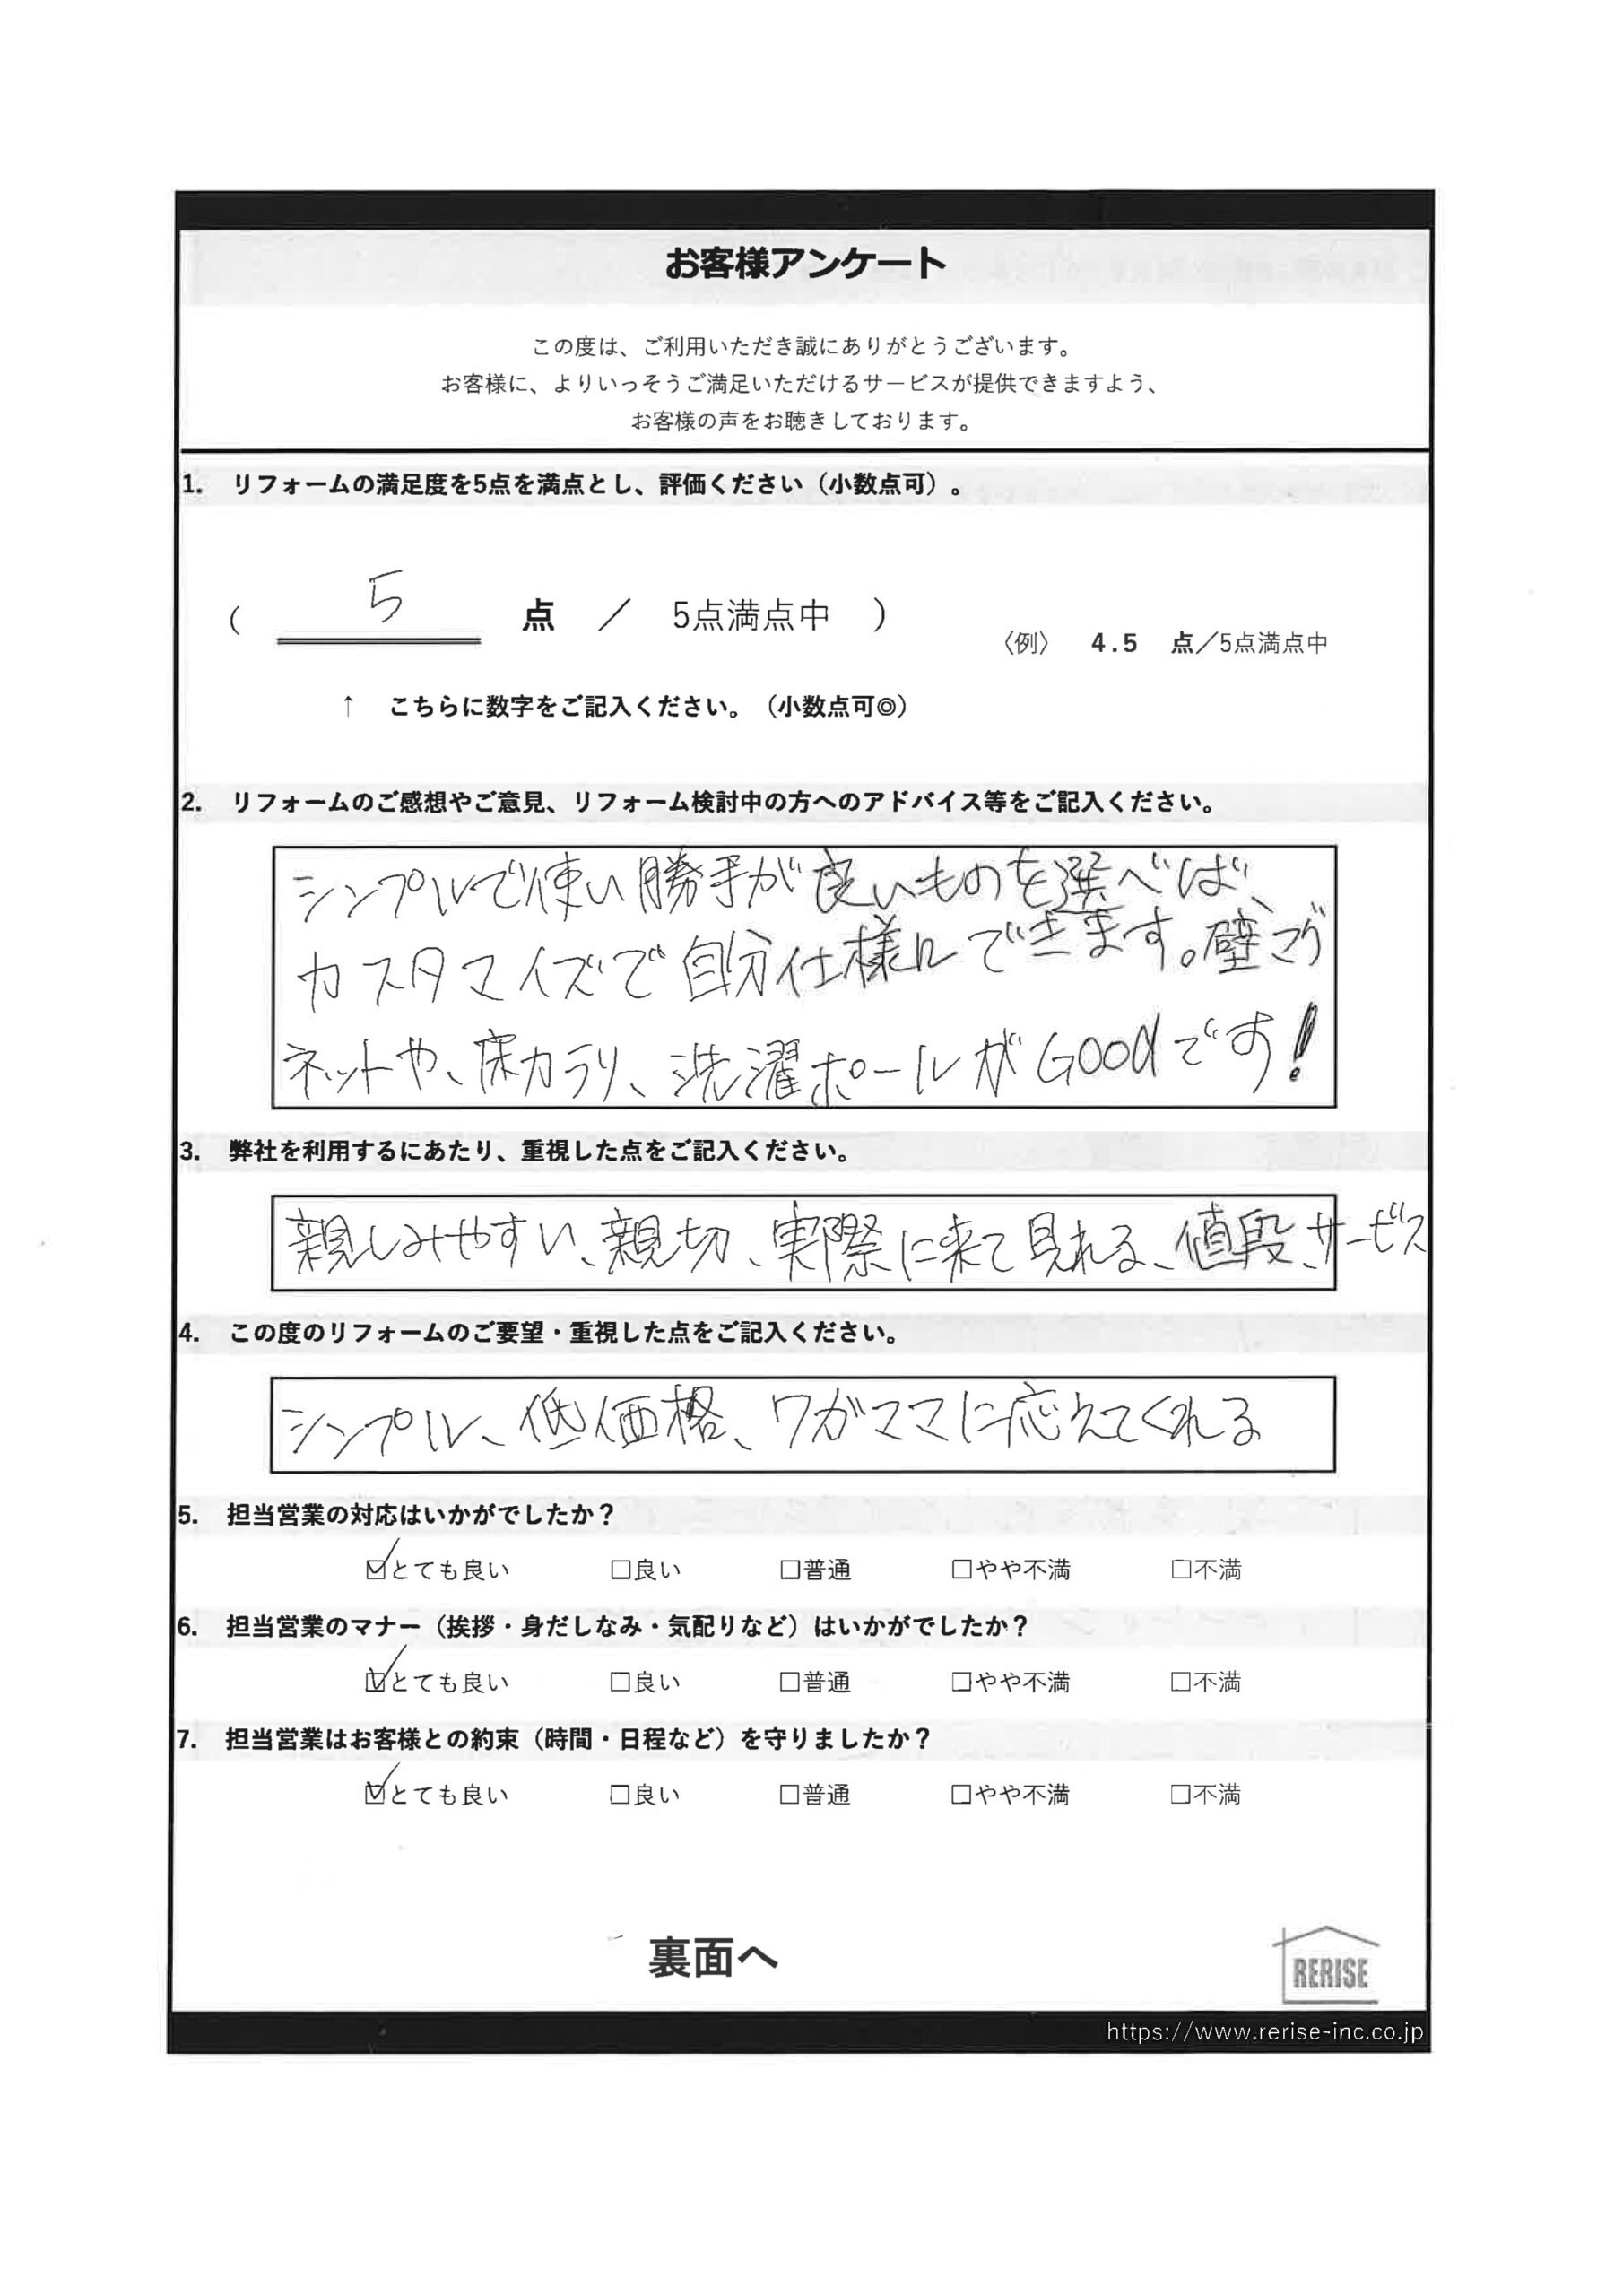 お客様アンケート
この度は、ご利用いただき誠にありがとうございます。
お客様に、よりいっそうご満足いただけるサービスが提供できますよう、
お客様の声をお聴きしております。
1. リフォームの満足度を5点を満点とし、評価ください（小数点可）。
( 5 点 ／ 5点満点中 )
〈例〉 4.5 点／5点満点中
↑ こちらに数字をご記入ください。（小数点可◎）
2. リフォームのご感想やご意見、リフォーム検討中の方へのアドバイス等をご記入ください。
シンプルで使い勝手が良いものを選べば、
カスタマイズで自分仕様にできます。壁マグ
ネットや、床カラリ、洗濯ポールがGoodです!
3. 弊社を利用するにあたり、重視した点をご記入ください。
親しみやすい、親切、実際に来て見れる、値段、サービス
4. この度のリフォームのご要望・重視した点をご記入ください。
シンプル、低価格、ワガママに応えてくれる
5. 担当営業の対応はいかがでしたか？
☑とても良い □良い □普通 □やや不満 □不満
6. 担当営業のマナー（挨拶・身だしなみ・気配りなど）はいかがでしたか？
☑とても良い □良い □普通 □やや不満 □不満
7. 担当営業はお客様との約束（時間・日程など）を守りましたか？
☑とても良い □良い □普通 □やや不満 □不満
裏面へ
RERISE
https://www.rerise-inc.co.jp